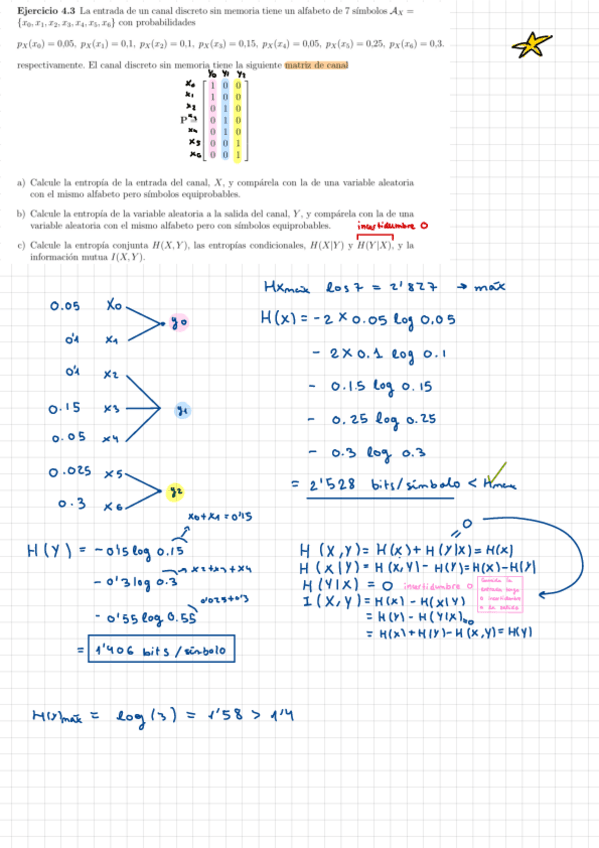 Ejercicio 4.3 La entrada de un canal discreto sin memoria tiene un alfabeto de 7 símbolos A_X =
{x₀, x₁, x₂, x₃, x₄, x₅, x₆} con probabilidades
p_X(x₀) = 0,05, p_X(x₁) = 0,1, p_X(x₂) = 0,1, p_X(x₃) = 0,15, p_X(x₄) = 0,05, p_X(x₅) = 0,25, p_X(x₆) = 0,3.
respectivamente. El canal discreto sin memoria tiene la siguiente matriz de canal
y₀ y₁ y₂
x₀ 1 0 0
x₁ 1 0 0
x₂ 0 1 0
P = x₃ 0 1 0
x₄ 0 1 0
x₅ 0 0 1
x₆ 0 0 1
a) Calcule la entropía de la entrada del canal, X, y compárela con la de una variable aleatoria
con el mismo alfabeto pero símbolos equiprobables.
b) Calcule la entropía de la variable aleatoria a la salida del canal, Y, y compárela con la de una
variable aleatoria con el mismo alfabeto pero con símbolos equiprobables.
incertidumbre 0
c) Calcule la entropía conjunta H(X,Y), las entropías condicionales, H(X|Y) y H(Y|X), y la
información mutua I(X,Y).
Hxmaix los 7 = 2'827 → máx
0.05 x₀
y₀
0'1 x₁
0'1 x₂
0.15 x₃ y₁
0.05 x₄
0.025 x₅
y₂
0.3 x₆
H(x) = -2 × 0.05 log 0.05
- 2×0.1 log 0.1
- 0.15 log 0.15
- 0.25 log 0.25
- 0.3 log 0.3
= 2'528 bits/símbolo < Hmax
x₀+x₁=0'15
H(Y) = -0'15 log 0.15
- 0'3 log 0.3 → x2+x3+x4
- 0'55 log 0.55 0'025+0'3
= 1'406 bits/símbolo
=0
H(X,Y) = H(x) + H(Y|X) = H(x)
H(X|Y) = H(X,Y) - H(Y) = H(x) - H(Y)
H(Y|X) = 0 incertidumbre 0
I(X,Y) = H(x) - H(X|Y)
= H(Y) - H(Y|X) =0
= H(x) + H(Y) - H(X,Y) = H(Y)
entrada tengo
0 incertidumbre
a la salida
H(Y)máx = log(3) = 1'58 > 1'4